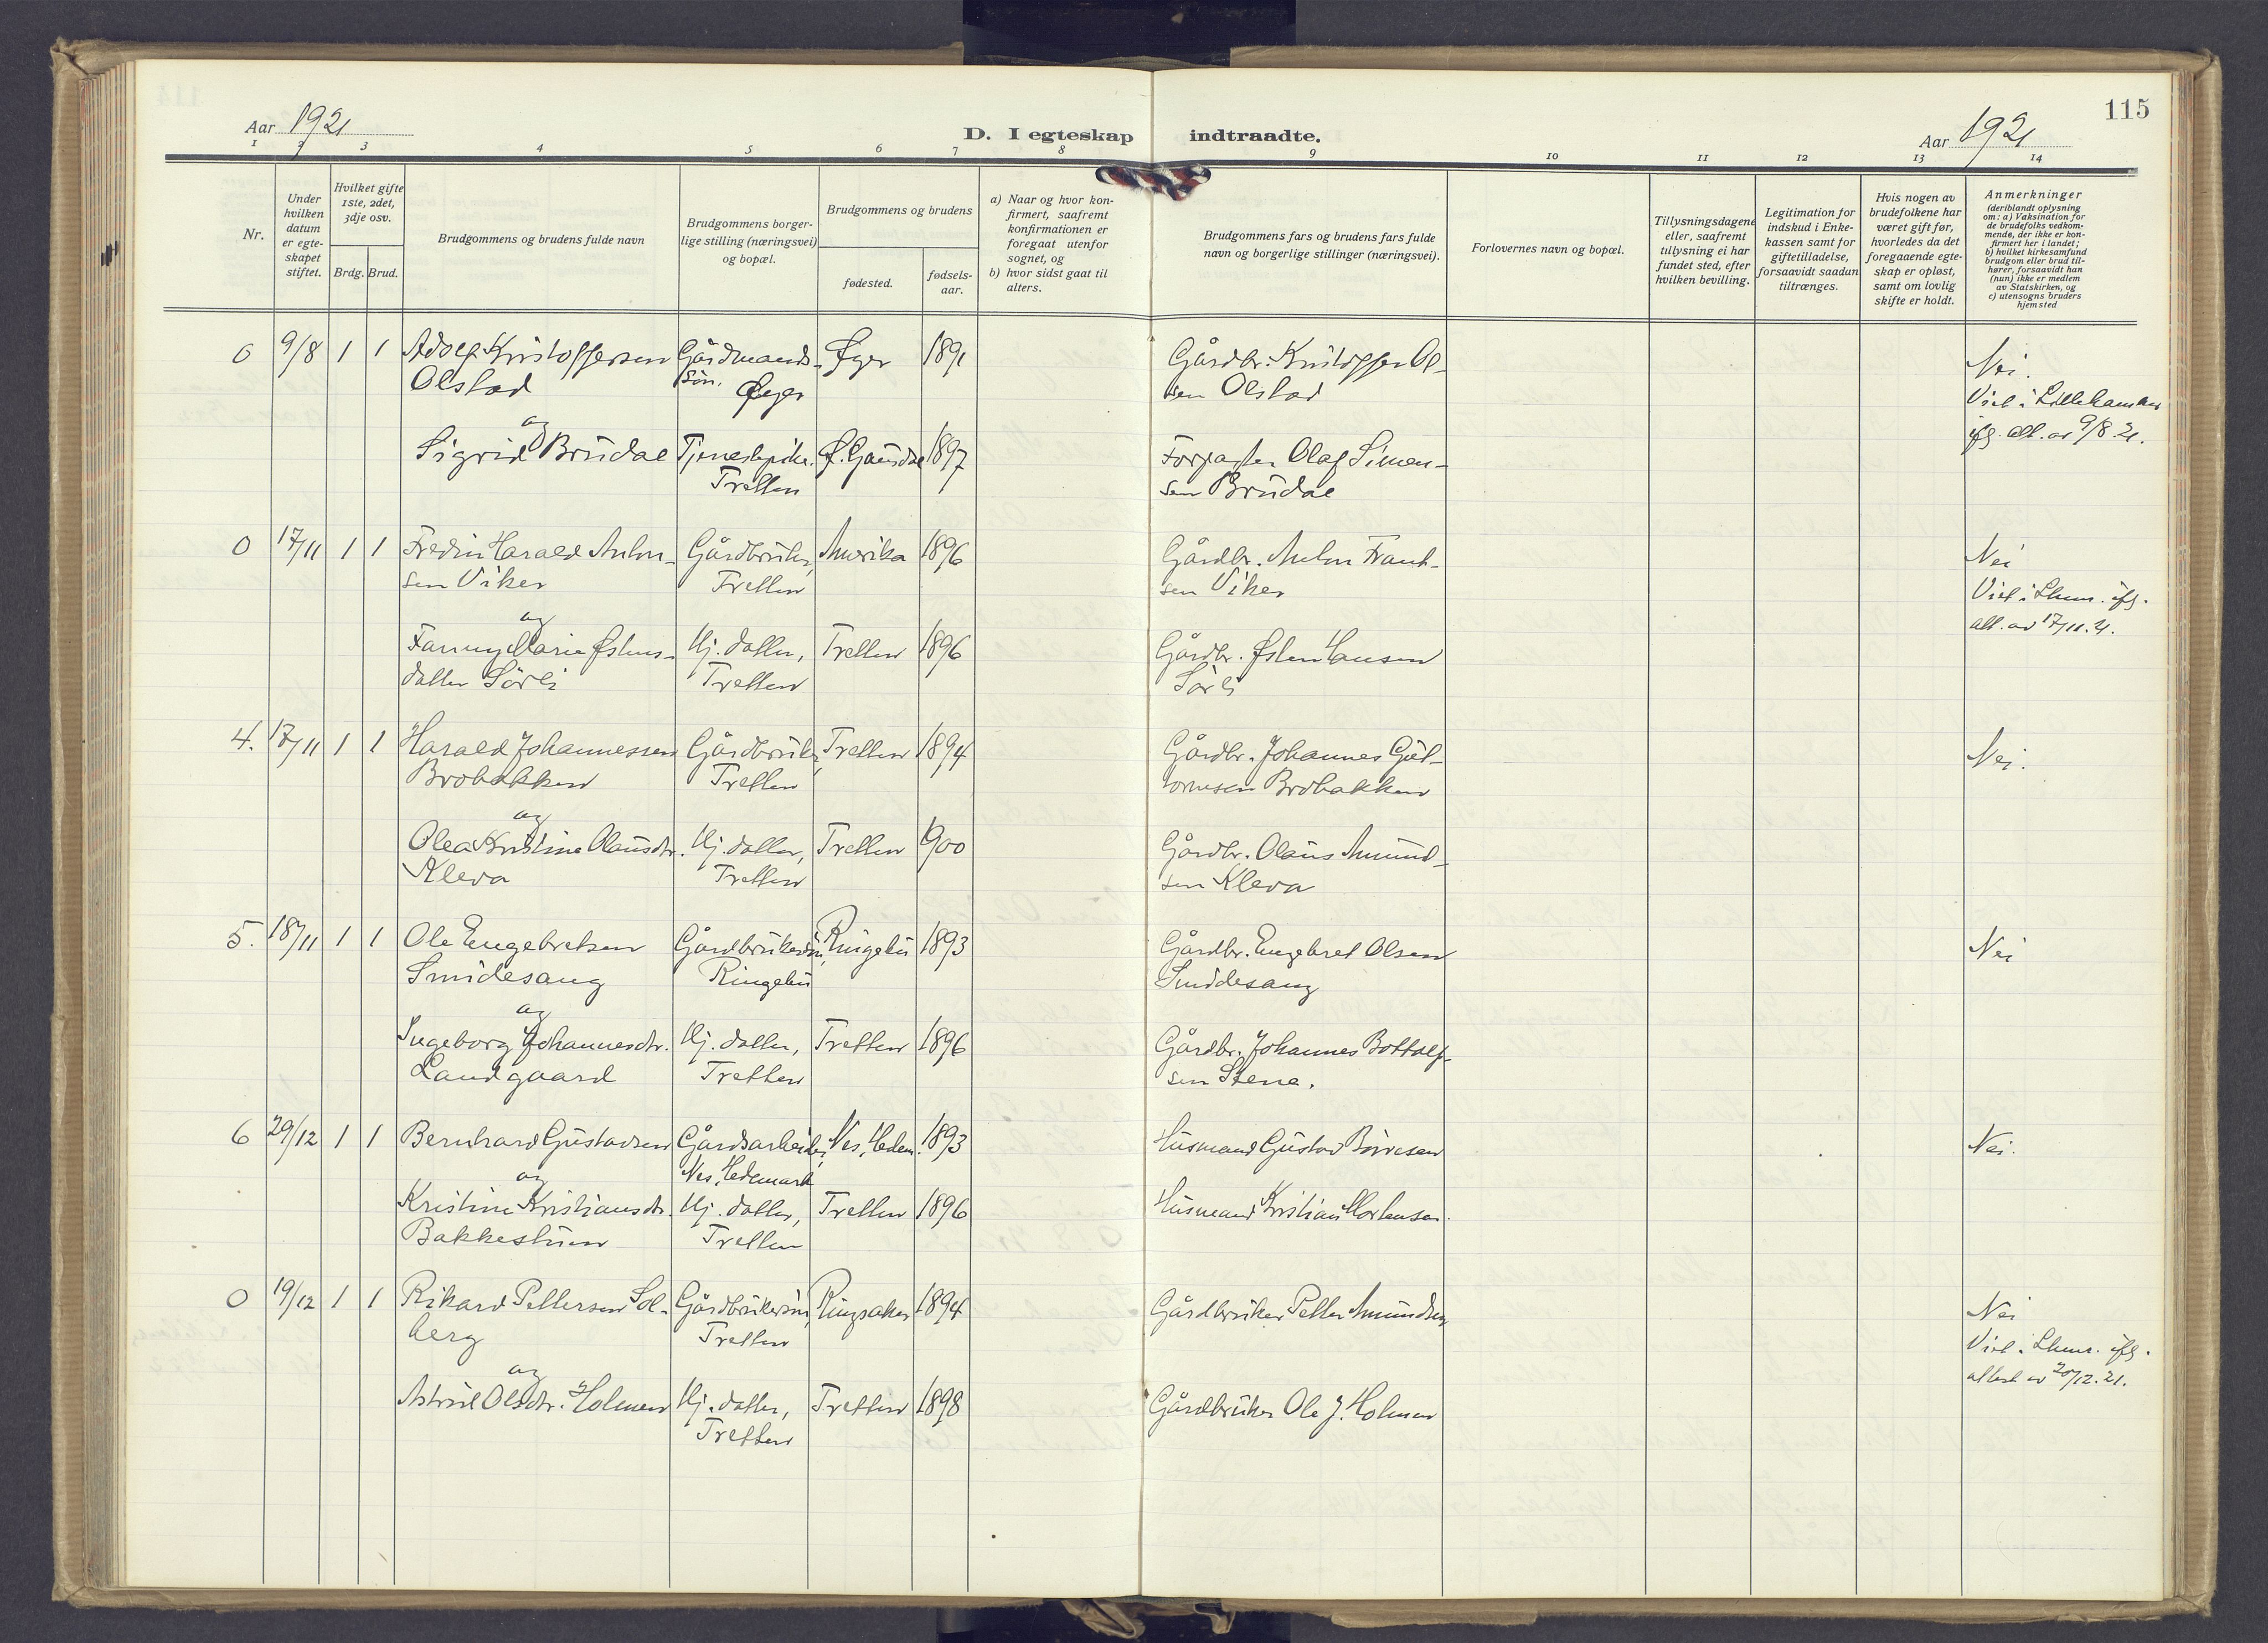 115
Aar 1921
D. I egteskap indtraadte.
Aar 1921
1 2 3 4 5 6 7 8 9 10 11 12 13 14
Nr.
Under
hvilken
datum
er egte-
skapet
stiftet.
Hvilket gifte
1ste, 2det,
3dje osv.
Brdg. Brud.
Brudgommens og brudens fulde navn
Brudgommens borger-
lige stilling (næringsvei)
og bopæl.
Brudgommens og brudens
fødested.
fødsels-
aar.
a) Naar og hvor kon-
firmert, saafremt
konfirmationen er
foregaat utenfor
sognet, og
b) hvor sidst gaat til
alters.
Brudgommens fars og brudens fars fulde
navn og borgerlige stillinger (næringsvei).
Forlovernes navn og bopæl.
Tillysningsdagene
eller, saafremt
tillysning ei har
fundet sted, efter
hvilken bevilling.
Legitimation for
indskud i Enke-
kassen samt for
giftetilladelse,
forsaavidt saadan
tiltrænges.
Hvis nogen av
brudefolkene har
været gift før,
hvorledes da det
foregaaende egte-
skap er opløst,
samt om lovlig
skifte er holdt.
Anmerkninger
(deriblandt oplysning
om: a) Vaksination for
de brudefolks vedkom-
mende, der ikke er kon-
firmert her i landet;
b) hvilket kirkesamfund
brudgom eller brud til-
hører, forsaavidt han
(hun) ikke er medlem
av Statskirken, og
c) utensogns bruders
hjemsted
0 9/8 1 1 Adolf Kristoffersen Gårdmands- Øyer 1891 Gårdbr. Kristoffer Ol- Nei.
Olstad søn. Øyer sen Olstad Viet i Lillehammer
og ifg. att. av 9/8.21.
Sigrid Brudal Tjenestepike. Ø. Gausdal 1897 Forpagter Olaf Simen-
Tretten sen Brudal
0 17/11 1 1 Fredrin Harald Anton- Gårdbruker, Amerika 1896 Gårdbr. Anton Frant- Nei
sen Viker Tretten sen Viker Viet i Lhmr. ifg.
og att. av 17/11.21.
Fanny Marie Østens- Hj. datter, Tretten 1896 Gårdbr. Østen Hansen
datter Sørli Tretten Sørli
4. 17/11 1 1 Harald Johannessen Gårdbruker, Tretten 1894 Gårdbr. Johannes Gut- Nei.
Brobakken Tretten tormsen Brobakken
og
Olea Kristine Olausdtr. Hj. datter, Tretten 1900 Gårdbr. Olaus Amund-
Kleva Tretten sen Kleva
5. 18/11 1 1 Ole Engebretsen Gårdbrukersøn, Ringebu 1893 Gårdbr. Engebret Olsen Nei
Smidesang Ringebu Smidesang
og
Ingeborg Johannesdtr. Hj. datter, Tretten 1896 Gårdbr. Johannes Bottolf-
Landgaard Tretten sen Stene.
6 29/12 1 1 Bernhard Gustavsen Gårdsarbeider, Nes, Hedem. 1893 Husmand Gustav Børresen Nei.
og Nes, Hedemark
Kristine Kristiansdtr. Hj. datter, Tretten 1896 Husmand Kristian Mortensen.
Bakkestuen Tretten
0 19/12 1 1 Rikard Pettersen Sol- Gårdbrukersøn, Ringsaker 1894 Gårdbruker Petter Amundsen Nei
berg Tretten Viet i Lhmr. ifg.
og attest av 20/12.21.
Astrid Olsdtr. Holmen Hj. datter, Tretten 1898 Gårdbruker Ole J. Holmen
Tretten